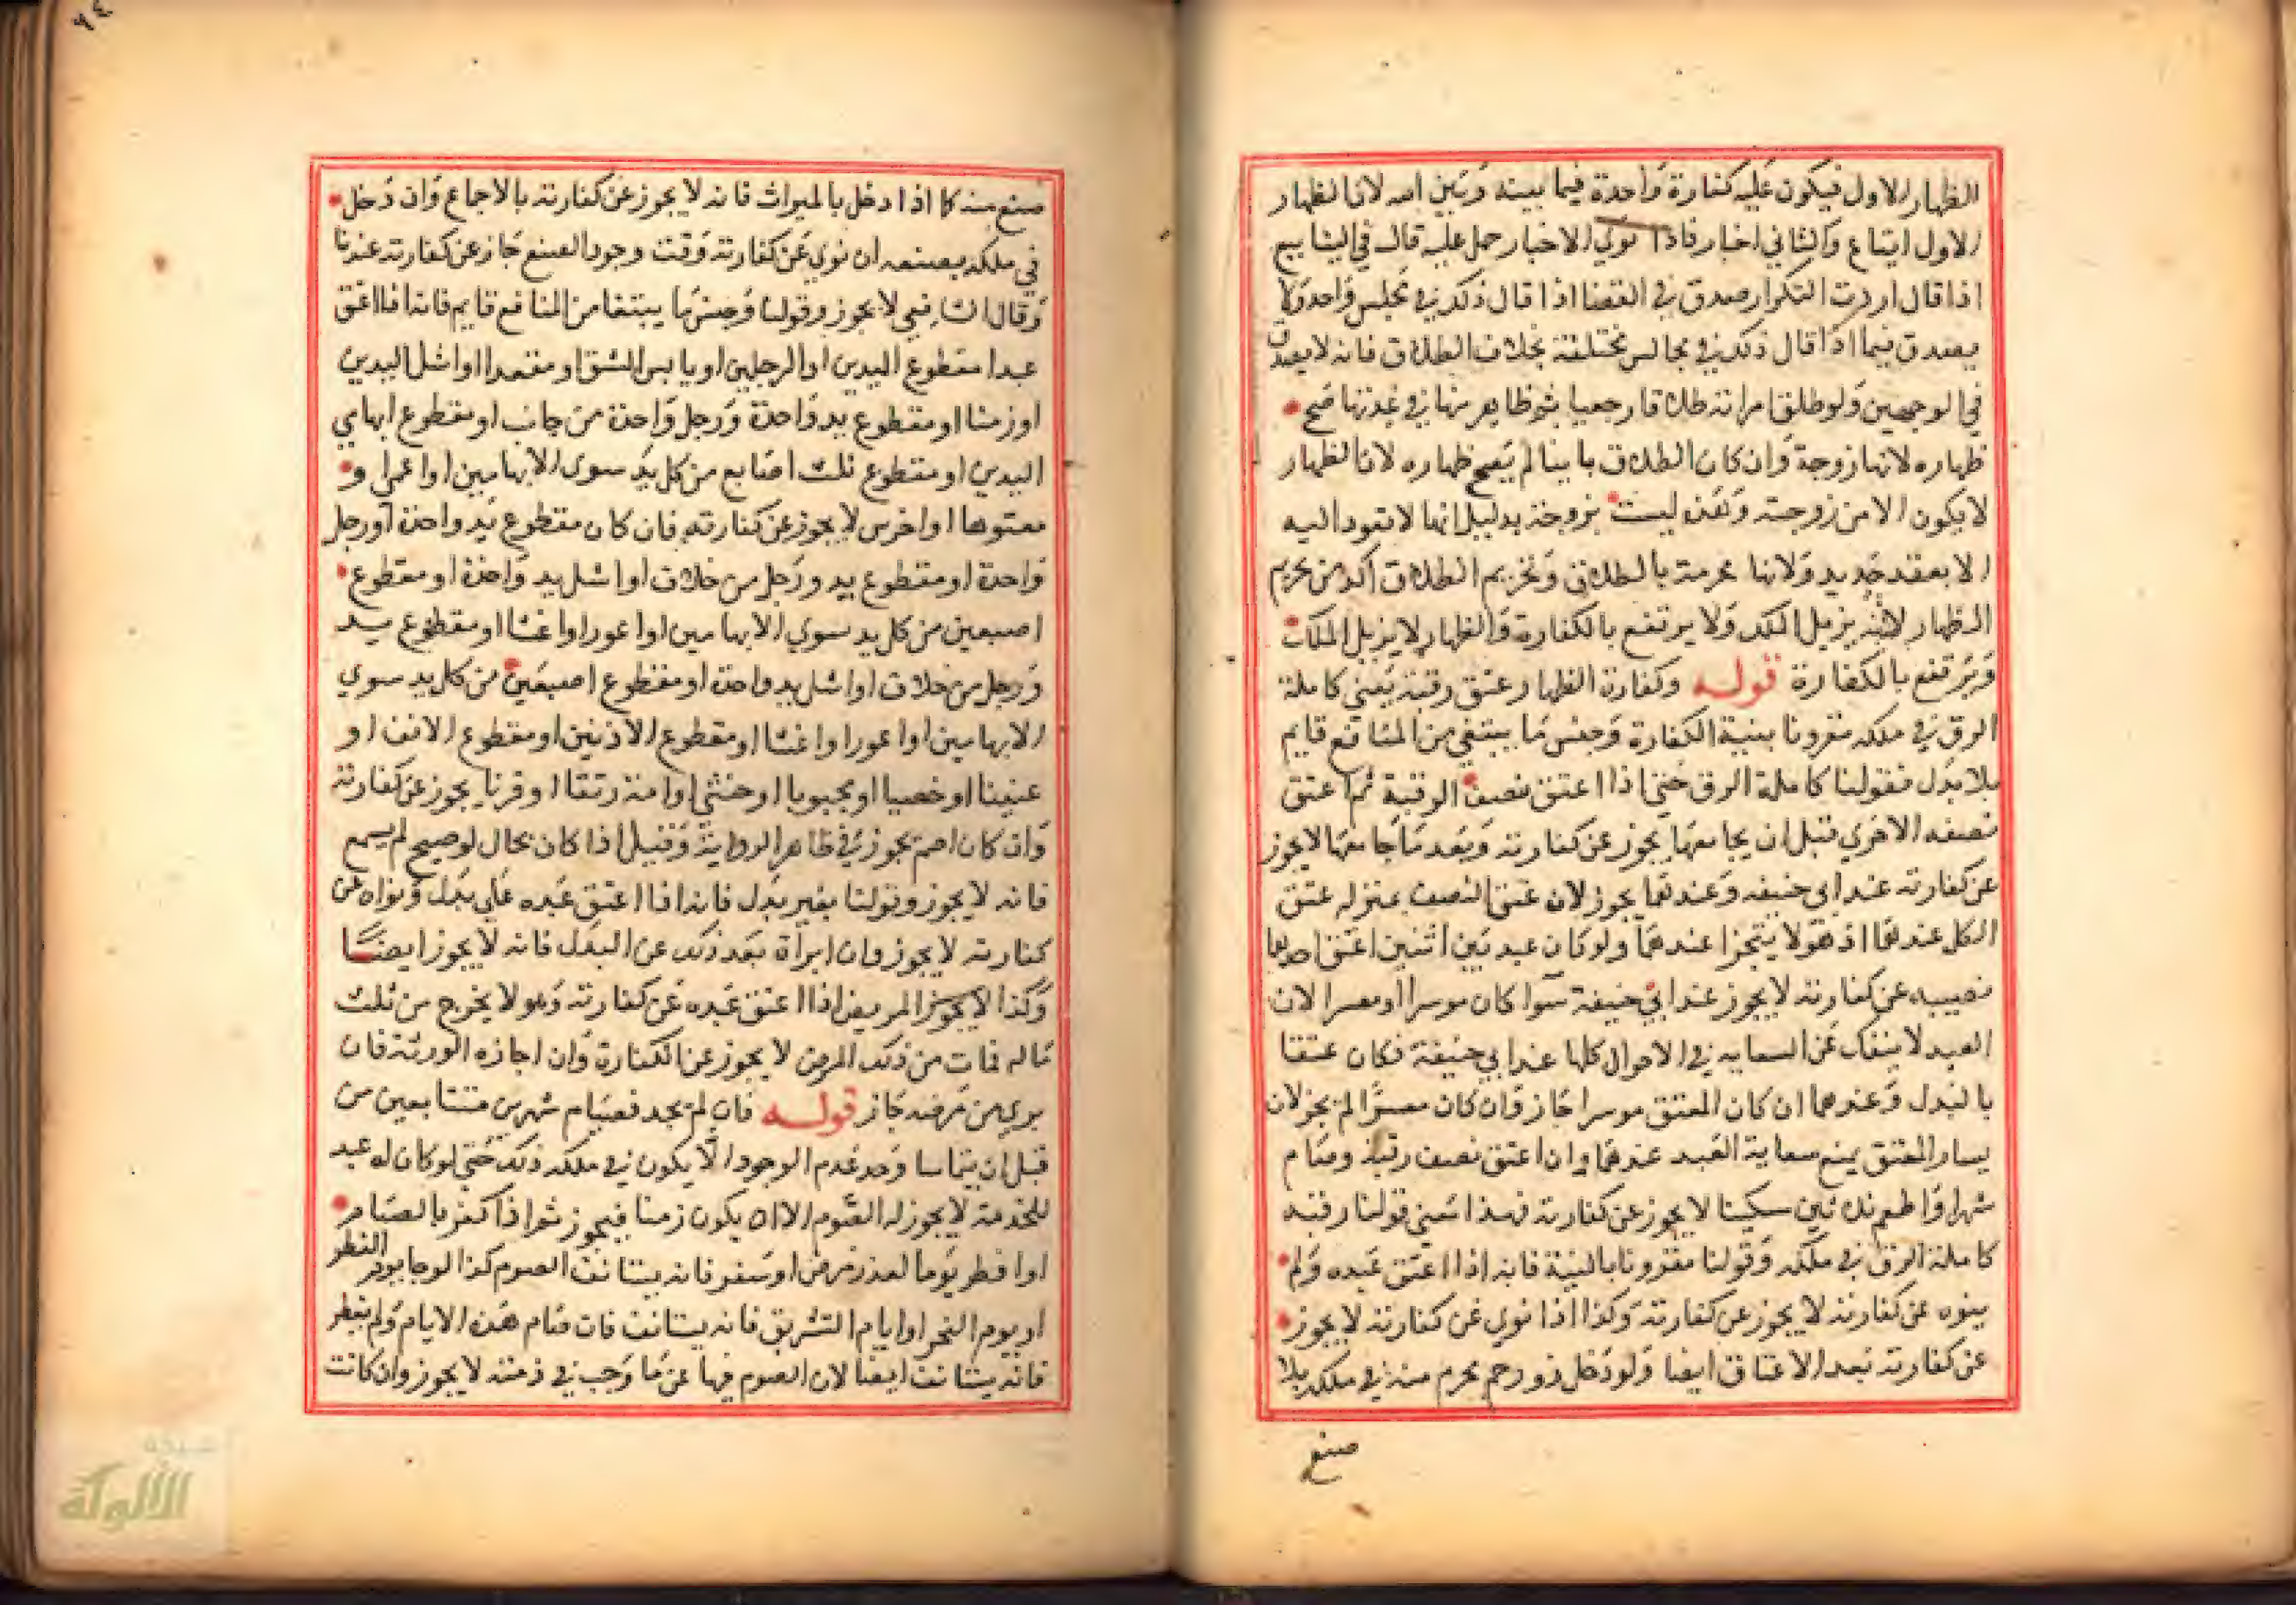 الظهار الاول فيكون عليه كفارة واحدة فيما بينه وبين الله لان الظهار
الاول ايقاع والثاني اخبار فاذا نوي الاخبار حمل عليه قال في الينابيع
اذا قال اردت التكرار صدق في القضا اذا قال ذلك في مجلس واحد ولا
يصدق فيما اذا قال ذلك في مجالس مختلفة بخلاف الطلاق فانه لا يصدق
في الوجهين ولو طلق امراته طلاقا رجعيا ثم ظاهر منها في عدتها صح
ظهاره لانها زوجة وان كان الطلاق باينا لم يصح ظهاره لان الظهار
لا يكون الا من زوجته وهذه ليست بزوجة بدليل انها لا تعود اليه
الا بعقد جديد ولانها محرمة بالطلاق وتحريم الطلاق اكد من تحريم
الظهار لانه يزيل الملك ولا يرتفع بالكفارة والظهار لا يزيل الملك
ويرتفع بالكفارة قوله وكفارة الظهار عتق رقبة يعني كاملة
الرق في ملكه مقرونا بنية الكفارة وجنس ما يبتغي من المنافع قايم
بلا بدل فقولنا كاملة الرق حتي اذا اعتق نصف الرقبة ثم اعتق
نصفه الاخري قبل ان يجامعها يجوز عن كفارته وبعد ما جامعها لا يجوز
عن كفارته عند ابي حنيفه وعندهما يجوز لان عتق النصف بمنزله عتق
الكل عندهما اذ هو لا يتجزا عندهما ولو كان عبد بين اثنين اعتق احدهما
نصيبه عن كفارته لا يجوز عند ابي حنيفة سوا كان موسرا او معسرا لان
العبد لا ينفك عن السعايه في الاحوال كلها عند ابي حنيفة فكان عتقا
بالبدل وعندهما ان كان المعتق موسرا جاز وان كان معسرا لم يجز لان
يسار المعتق يمنع سعاية العبد عندهما وان اعتق نصف رقبة وصام
شهرا واطعم ثلاثين مسكينا لا يجوز عن كفارته فهذا معني قولنا رقبه
كاملة الرق في ملكه وقولنا مقرونا بالنية فانه اذا اعتق عبده ولم
ينوه عن كفارته لا يجوز عن كفارته وكذا اذا نوي عن كفارته لا يجوز
عن كفارته بعد الاعتاق ايضا ولو دخل ذو رحم محرم منه في ملكه بلا
صنع
صنع منه كما اذا دخل بالميراث فانه لا يجوز عن كفارته بالاجماع وان دخل
في ملكه بصنعه ان نوي عن كفارته وقت وجود الصنع جاز عن كفارته عندنا
وقال الشافعي لا يجوز وقولنا وجنس ما يبتغا من المنافع قايم فانه اذا اعتق
عبدا مقطوع اليدين او الرجلين او يابس الشق او مقعدا او اشل اليدين
او زمنا او مقطوع يد واحدة ورجل واحدة من جانب او مقطوع ابهامي
اليدين او مقطوع ثلث اصابع من كل يد سوى الابهامين او اعمي او
معتوها او اخرس لا يجوز عن كفارته فان كان مقطوع يد واحدة او رجل
واحدة او مقطوع يد ورجل من خلاف او اشل يد واحدة او مقطوع
اصبعين من كل يد سوي الابهامين او اعور او اعشا او مقطوع يد
ورجل من خلاف او اشل يد واحدة او مقطوع اصبعين من كل يد سوي
الابهامين او اعور او اعشا او مقطوع الاذنين او مقطوع الانف او
عنينا او خصيا او مجبوبا او خنثي او امة رتقا او قرنا يجوز عن كفارته
وان كان اصم يجوز في ظاهر الرواية وقيل اذا كان بحال لو صيح لم يسمع
فانه لا يجوز وقولنا بغير بدل فانه اذا اعتق عبده علي بدل ونواه عن
كفارته لا يجوز وان ابراه بعد ذلك عن البدل فانه لا يجوز ايضا
وكذا لا يجوز المريض اذا اعتق عبده عن كفارته وهو لا يخرج من ثلث
ماله فمات من ذلك المرض لا يجوز عن الكفارة وان اجازه الورثة فان
بري من مرضه جاز قوله فان لم يجد فصيام شهرين متتابعين من
قبل ان يتماسا وحد عدم الوجود الا يكون في ملكه ذلك حتي لو كان له عبد
للخدمة لا يجوز له الصوم الا ان يكون زمنا فيجوز ثم اذا كفر بالصيام
او افطر يوما لعذر مرض او سفر فانه يستانف الصوم كذا لو جا يوم الفطر
او يوم النحر او ايام التشريق فانه يستانف فان صام هذه الايام ولم يفطر
فانه يستانف ايضا لان الصوم فيها عن ما وجب في ذمته لا يجوز وان كانت
شبكة
الألوكة